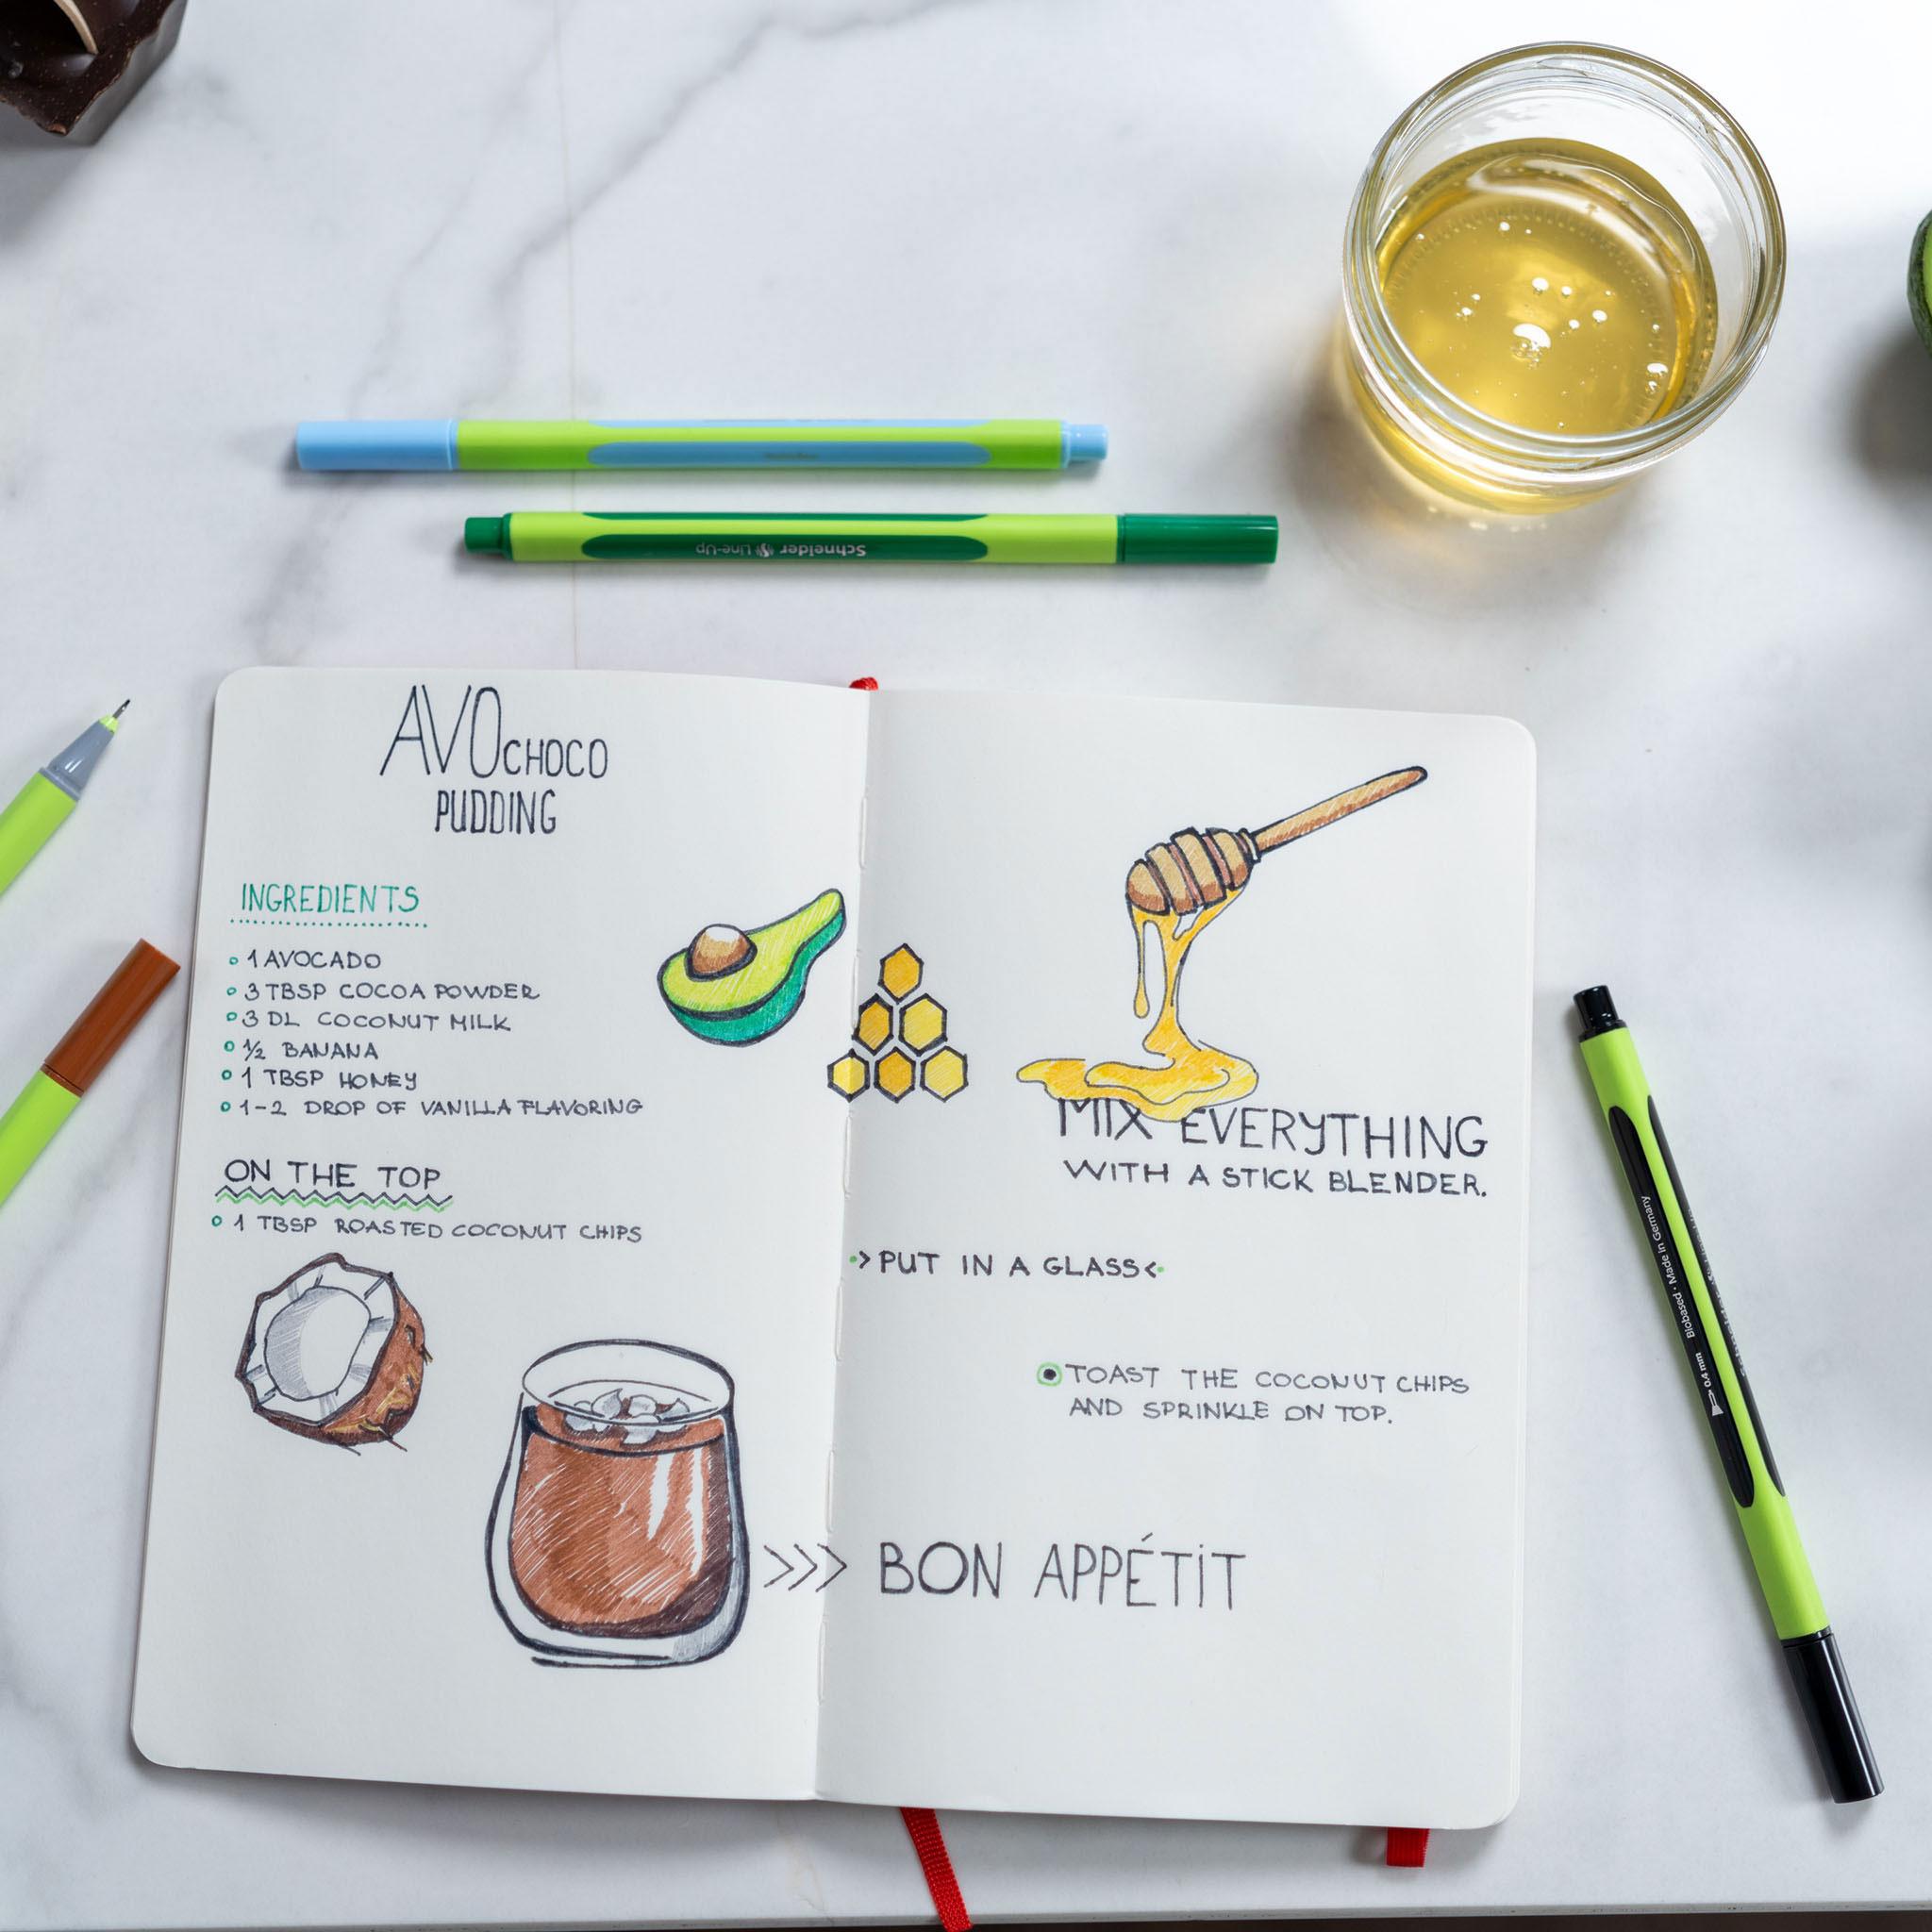 Schneider Line-Up
AVOCHOCO
PUDDING
INGREDIENTS
1 AVOCADO
3 TBSP COCOA POWDER
3 DL COCONUT MILK
½ BANANA
1 TBSP HONEY
1-2 DROP OF VANILLA FLAVORING
ON THE TOP
1 TBSP ROASTED COCONUT CHIPS
MIX EVERYTHING
WITH A STICK BLENDER.
PUT IN A GLASS
TOAST THE COCONUT CHIPS
AND SPRINKLE ON TOP.
>>> BON APPÉTIT
0.4 mm Biobased • Made in Germany